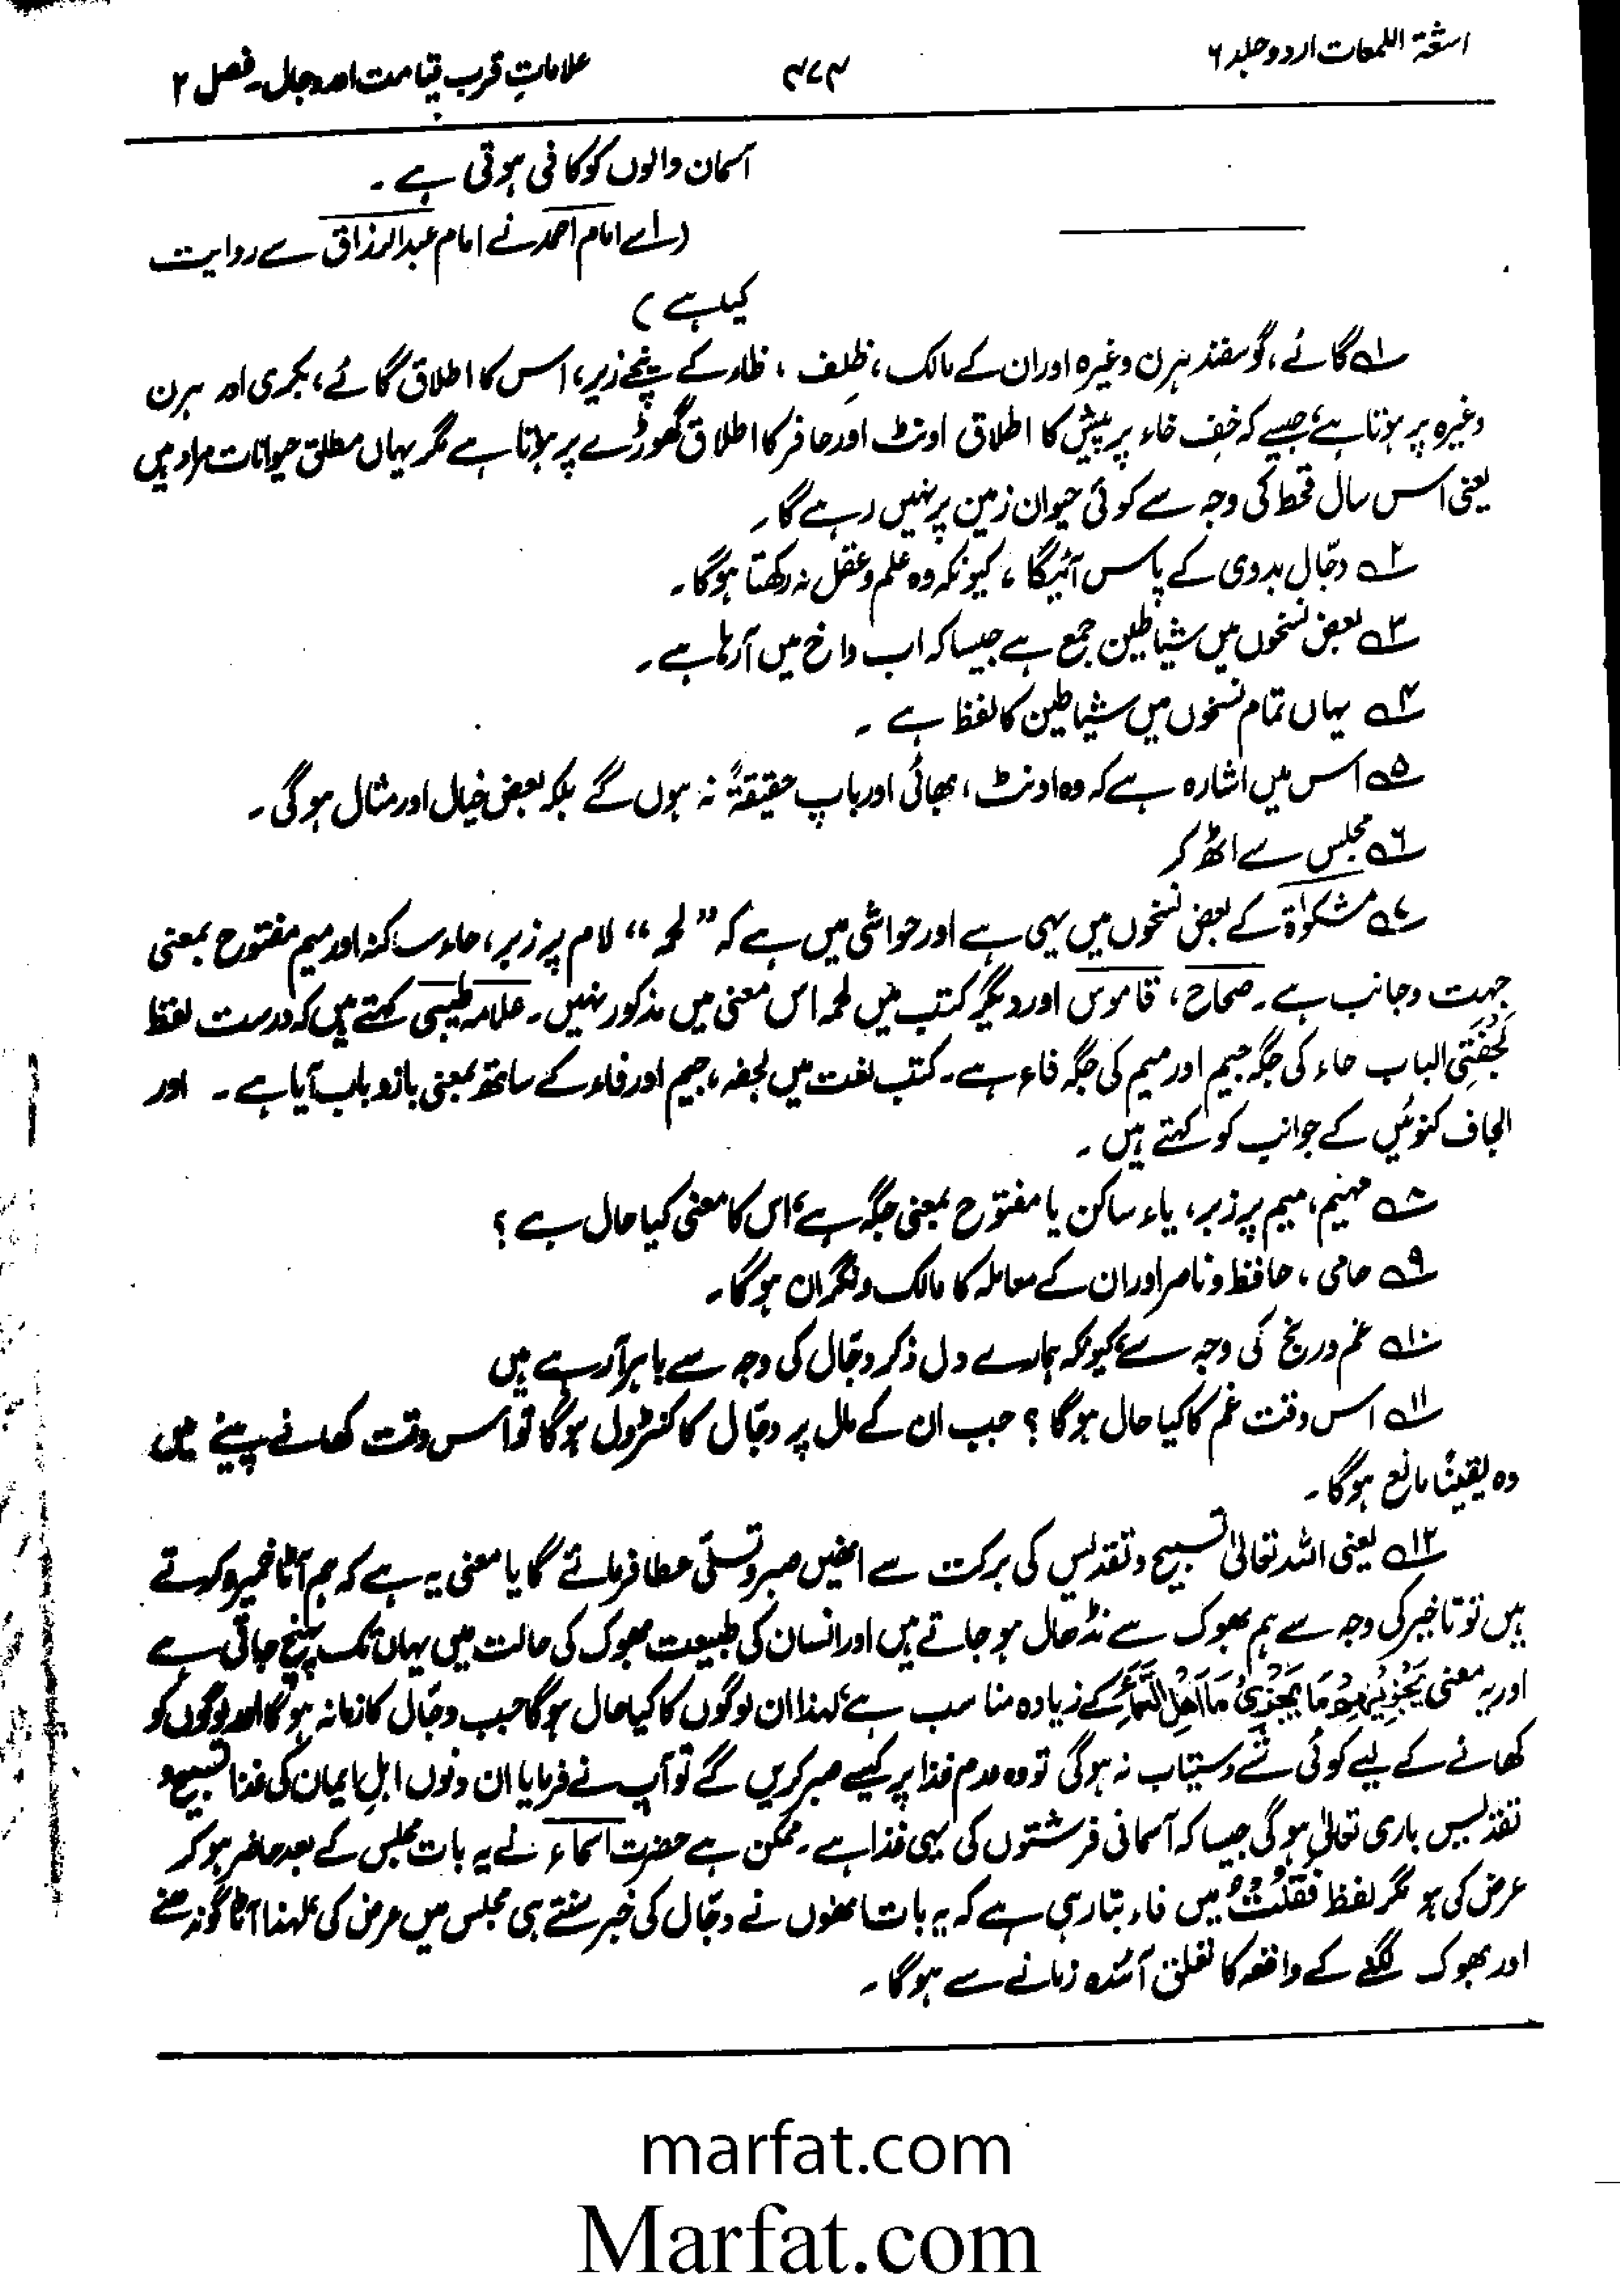 اشعۃ اللمعات اردو جلد ۶
۴۷۴
علاماتِ قرب قیامت اور دجال۔ فصل ۲
آسمان والوں کو کافی ہوتی ہے ۔
(اسے امام احمد نے امام عبدالرزاق سے روایت
کیا ہے)
۱؎ گائے، گوسفند ہرن وغیرہ اور ان کے مالک، ظِلف ، ظاء کے نیچے زیر، اس کا اطلاق گائے، بکری اور ہرن
وغیرہ پر ہوتا ہے، جیسے کہ خف خاء پر پیش کا اطلاق اونٹ اور حافر کا اطلاق گھوڑے پر ہوتا ہے مگر یہاں مطلق حیوانات مراد ہیں
یعنی اس سال قحط کی وجہ سے کوئی حیوان زمین پر نہیں رہے گا۔
۲؎ دجّال بدوی کے پاس آئیگا ، کیونکہ وہ علم و عقل نہ رکھتا ہوگا۔
۳؎ بعض نسخوں میں شیاطین جمع ہے جیسا کہ اب واخ میں آرہا ہے۔
۴؎ یہاں تمام نسخوں میں شیاطین کا لفظ ہے ۔
۵؎ اس میں اشارہ ہے کہ وہ اونٹ، بھائی اور باپ حقیقۃً نہ ہوں گے بلکہ بعض خیال اور مثال ہوگی۔
۶؎ مجلس سے اٹھ کر
۷؎ مشکوٰۃ کے بعض نسخوں میں یہی ہے اور حواشی میں ہے کہ "لحمہ" لام پر زبر، حاء ساکنہ اور میم مفتوح بمعنی
جہت وجانب ہے۔ صحاح، قاموس اور دیگر کتب میں لحمہ اس معنی میں مذکور نہیں۔ علامہ طیبی کہتے ہیں کہ درست لفظ
لَجْفَتَیِ الباب حاء کی جگہ جیم اور میم کی جگہ فاء ہے۔ کتب لغت میں لجفہ، جیم اور فاء کے ساتھ بمعنی بازو باب آیا ہے۔ اور
الجاف کنوئیں کے جوانب کو کہتے ہیں ۔
۸؎ مہیم، میم پر زبر، یاء ساکن یا مفتوح بمعنی جگہ ہے، اس کا معنی کیا حال ہے ؟
۹؎ حامی ، حافظ و ناصر اور ان کے معاملہ کا مالک و نگران ہوگا۔
۱۰؎ غم ورنج کی وجہ سے، کیونکہ ہمارے دل ذکر دجّال کی وجہ سے باہر آرہے ہیں
۱۱؎ اس وقت غم کا کیا حال ہوگا ؟ جب ان کے مال پر دجّال کا کنٹرول ہوگا تو اس وقت کھانے پینے میں
وہ یقیناً مانع ہوگا۔
۱۲؎ یعنی اللہ تعالیٰ تسبیح و تقدیس کی برکت سے انھیں صبر و تسلّی عطا فرمائے گا یا معنی یہ ہے کہ ہم آٹا خمیرہ کرتے
ہیں تو تاخیر کی وجہ سے ہم بھوک سے نڈھال ہو جاتے ہیں اور انسان کی طبیعت بھوک کی حالت میں یہاں تک پہنچ جاتی ہے
اور یہ معنی یَجْزِیْهِمْ مَا یَجْزِیُ مَا اَهْلَ السَّمَاءِ کے زیادہ مناسب ہے، لہذا ان لوگوں کا کیا حال ہوگا جب دجّال کا زمانہ ہوگا اور لوگوں کو
کھانے کے لیے کوئی شے دستیاب نہ ہوگی تو وہ عدم غذا پر کیسے صبر کریں گے تو آپ نے فرمایا ان دنوں اہلِ ایمان کی غذا تسبیح و
تقدیس باری تعالیٰ ہوگی جیسا کہ آسمانی فرشتوں کی یہی غذا ہے۔ ممکن ہے حضرت اسماء نے یہ بات مجلس کے بعد حاضر ہو کر
عرض کی ہو مگر لفظ فَقُلْتُ میں فاء بتا رہی ہے کہ یہ بات انھوں نے دجّال کی خبر سنتے ہی مجلس میں عرض کی، لہذا آٹا گوندھنے
اور بھوک لگنے کے واقعہ کا تعلق آئندہ زمانے سے ہوگا۔
marfat.com
Marfat.com